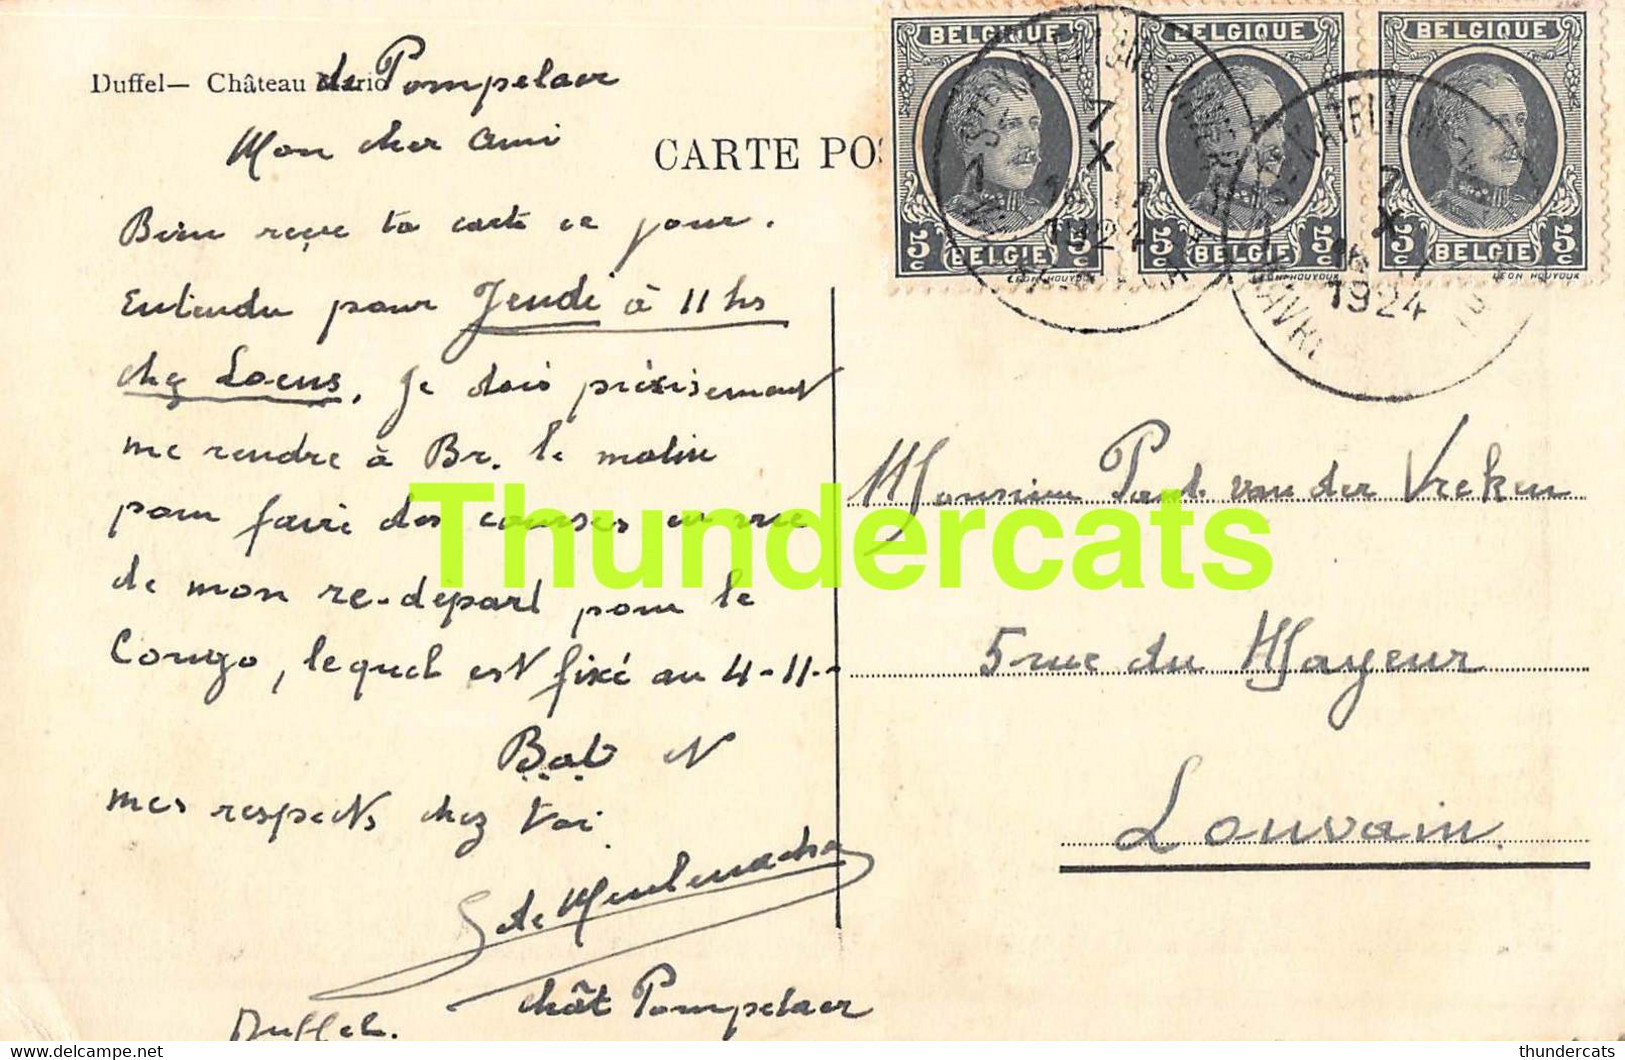 Duffel— Château Marie
de Pompelaer
CARTE PO
Mon cher Ami
Bien reçue ta carte ce jour.
Entendu pour Jeudi à 11 hs
chez Locus. Je dois précisement
me rendre à Br. le matin
pour faire des courses en vue
de mon re-départ pour le
Congo, lequel est fixé au 4-11.-
Bat
mes respects chez toi.
de Meulenaere
chât Pompelaer
Duffel.
BELGIQUE
5c BELGIE 5c
LEON HOUYOUX
BELGIQUE
5c BELGIE 5c
LEON HOUYOUX
BELGIQUE
5c BELGIE 5c
LEON HOUYOUX
7
X
1924
7
X
1924
Monsieur Paul van der Vreken
5 rue du Mayeur
Louvain.
Thundercats
thundercats
thundercats.com